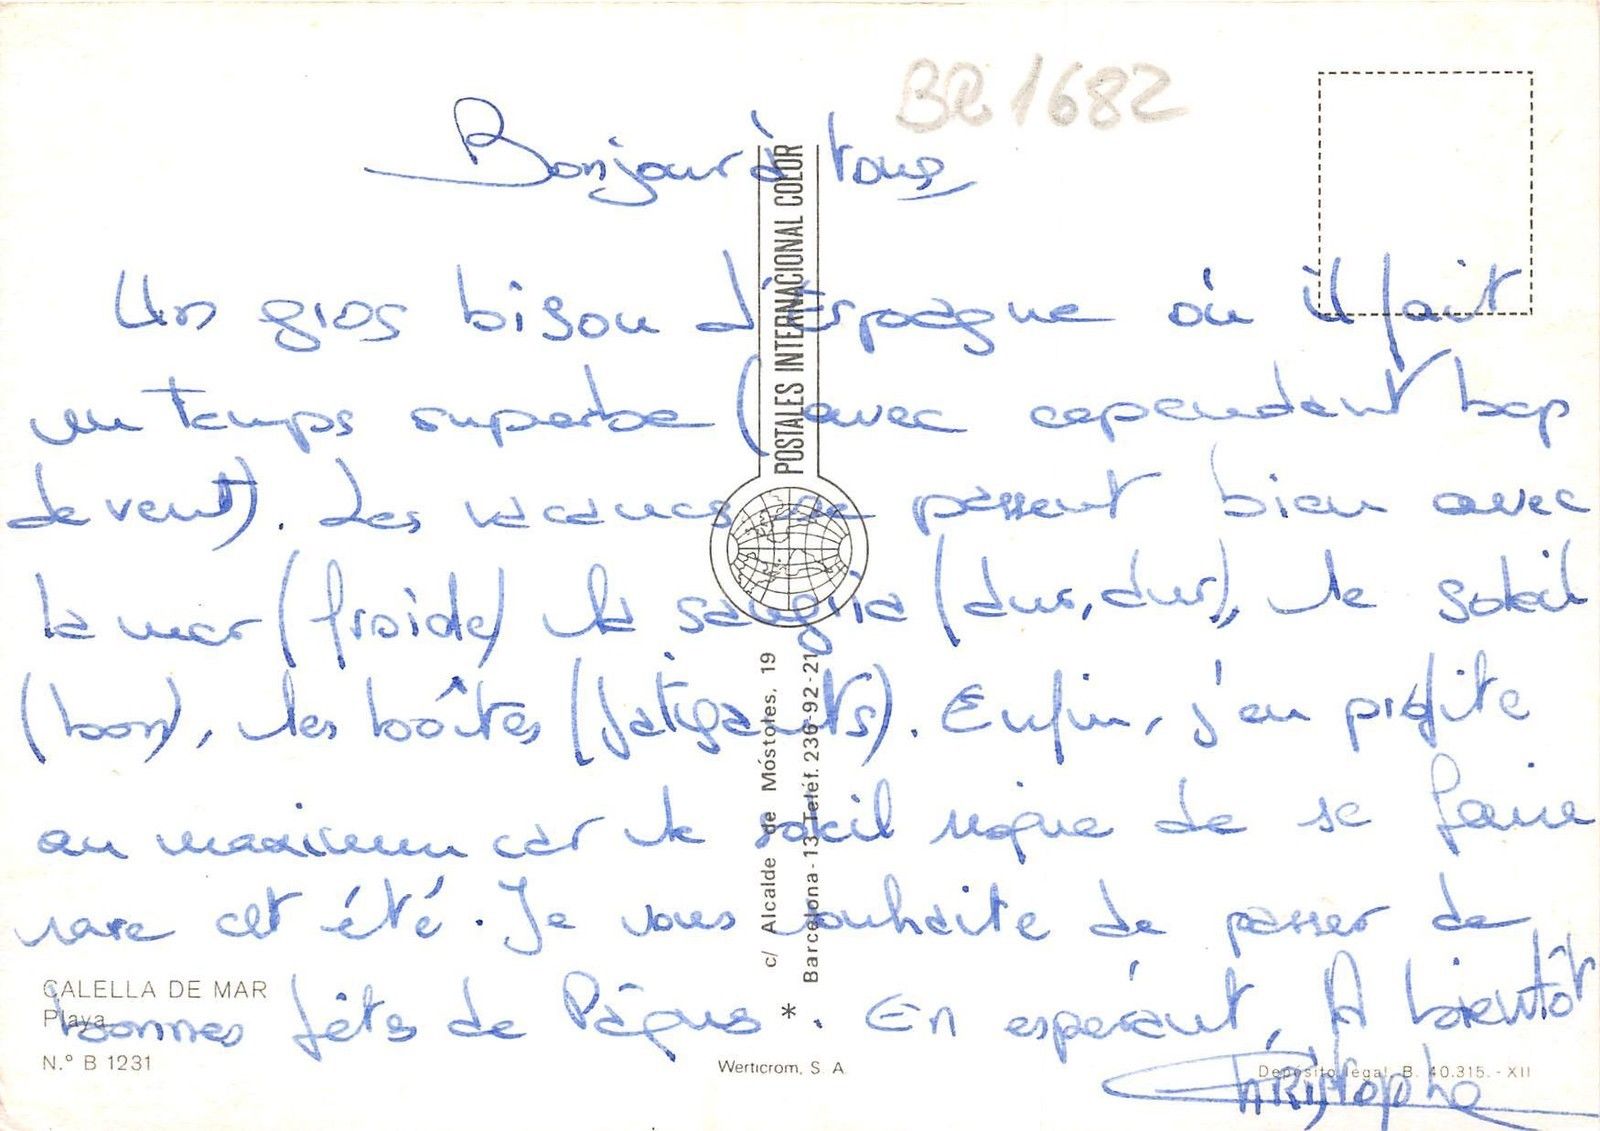 BR 1682
Bonjour à tous
Un gros bisou d'Espagne où il fait
un temps superbe (avec cependant bcp
de vent). Les vacances se passent bien avec
la mer (froide) la sangria (dur, dur), le soleil
(bon), les boîtes (fatigants). Enfin, j'en profite
au maximum car le soleil risque de se faire
rare cet été. Je vous souhaite de passer de
bonnes fêtes de Pâques. En espérant, A bientôt
Christophe
POSTALES INTERNACIONAL COLOR
c/ Alcalde de Móstoles, 19
Barcelona-13 Teléf. 236-92-21
*
CALELLA DE MAR
Playa
N.º B 1231
Werticrom, S A
Depósito legal B. 40.315.-XII